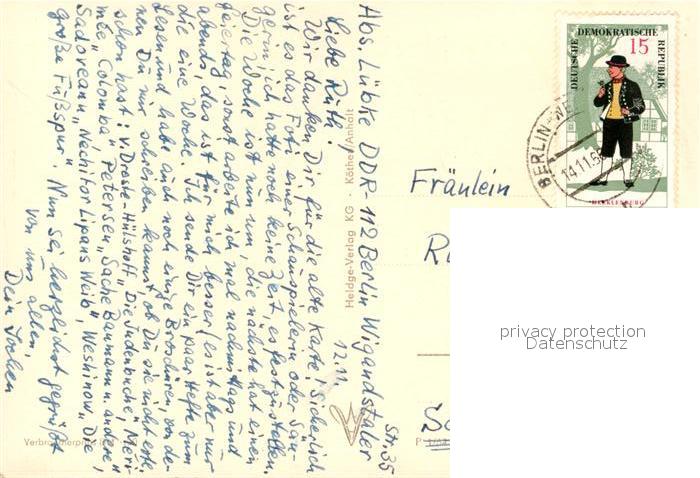 Abs. Lübke DDR-112 Berlin Wigandstaler
Str. 35
12.11.
Liebe Ruth!
Wir danken Dir für die alte Karte! Sicherlich
ist es das Foto einer Schauspielerin oder Sän-
gerin, ich hatte noch keine Zeit, es festzustellen.
Die Woche ist nun um, die nächste hat einen
Feiertag, sonst arbeite ich mal nachmittags und
abends, das ist für mich besser, es ist aber nur
die eine Woche. Ich sende Dir ein paar Hefte zum
Lesen und habe auch noch einige Broschüren, von de-
nen Du mir schreiben kannst ob Du sie nicht etwa
schon hast: v. Droste-Hülshoff "Die Judenbuche", Meri-
mée "Colomba" Petersen "Sache Baumann u. andere",
Sadoveanu "Nechifor Lipans Weib", Weshinow "Die
große Fußspur". Nun sei herzlichst gegrüßt
von uns allen,
Dein Jochen
Heldge-Verlag KG Köthen/Anhalt
Verbraucherpreis
Fräulein
DEUTSCHE DEMOKRATISCHE REPUBLIK
15
MECKLENBURG
BERLIN
14.11.
privacy protection
Datenschutz